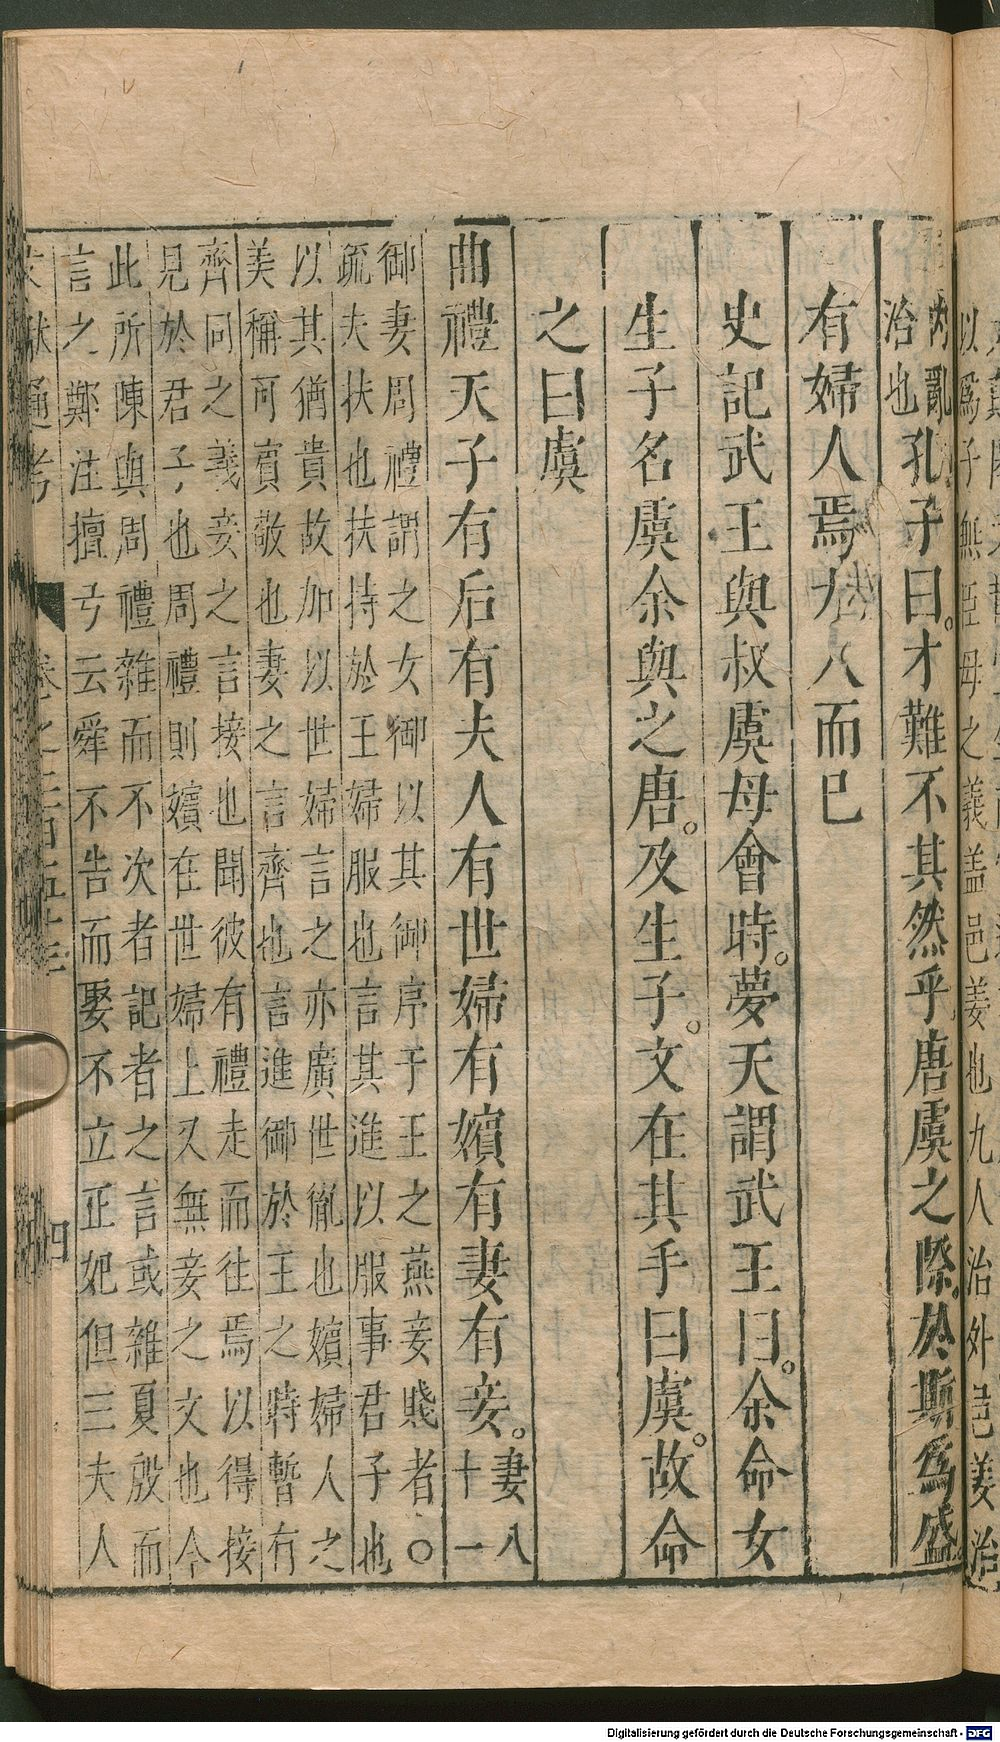 以爲子無臣母之義盖邑姜也九人治外邑姜治
內亂
治也孔子曰才難不其然乎唐虞之際於斯爲盛
有婦人焉九人而已
史記武王與叔虞母會時夢天謂武王曰余命女
生子名虞余與之唐及生子文在其手曰虞故命
之曰虞
曲禮天子有后有夫人有世婦有嬪有妻有妾妻八
十一
御妻周禮謂之女御以其御序于王之燕妾賤者〇
疏夫扶也扶持於王婦服也言其進以服事君子也
以其猶貴故加以世婦言之亦廣世胤也嬪婦人之
美稱可賓敬也妻之言齊也言進御於王之時暫有
齊同之義妾之言接也聞彼有禮走而往焉以得接
見於君子也周禮則嬪在世婦上又無妾之文也今
此所陳與周禮雜而不次者記者之言或雜夏殷而
言之鄭注檀弓云舜不告而娶不立正妃但三夫人
文獻通考 卷之二百五十三 四
Digitalisierung gefördert durch die Deutsche Forschungsgemeinschaft - DFG